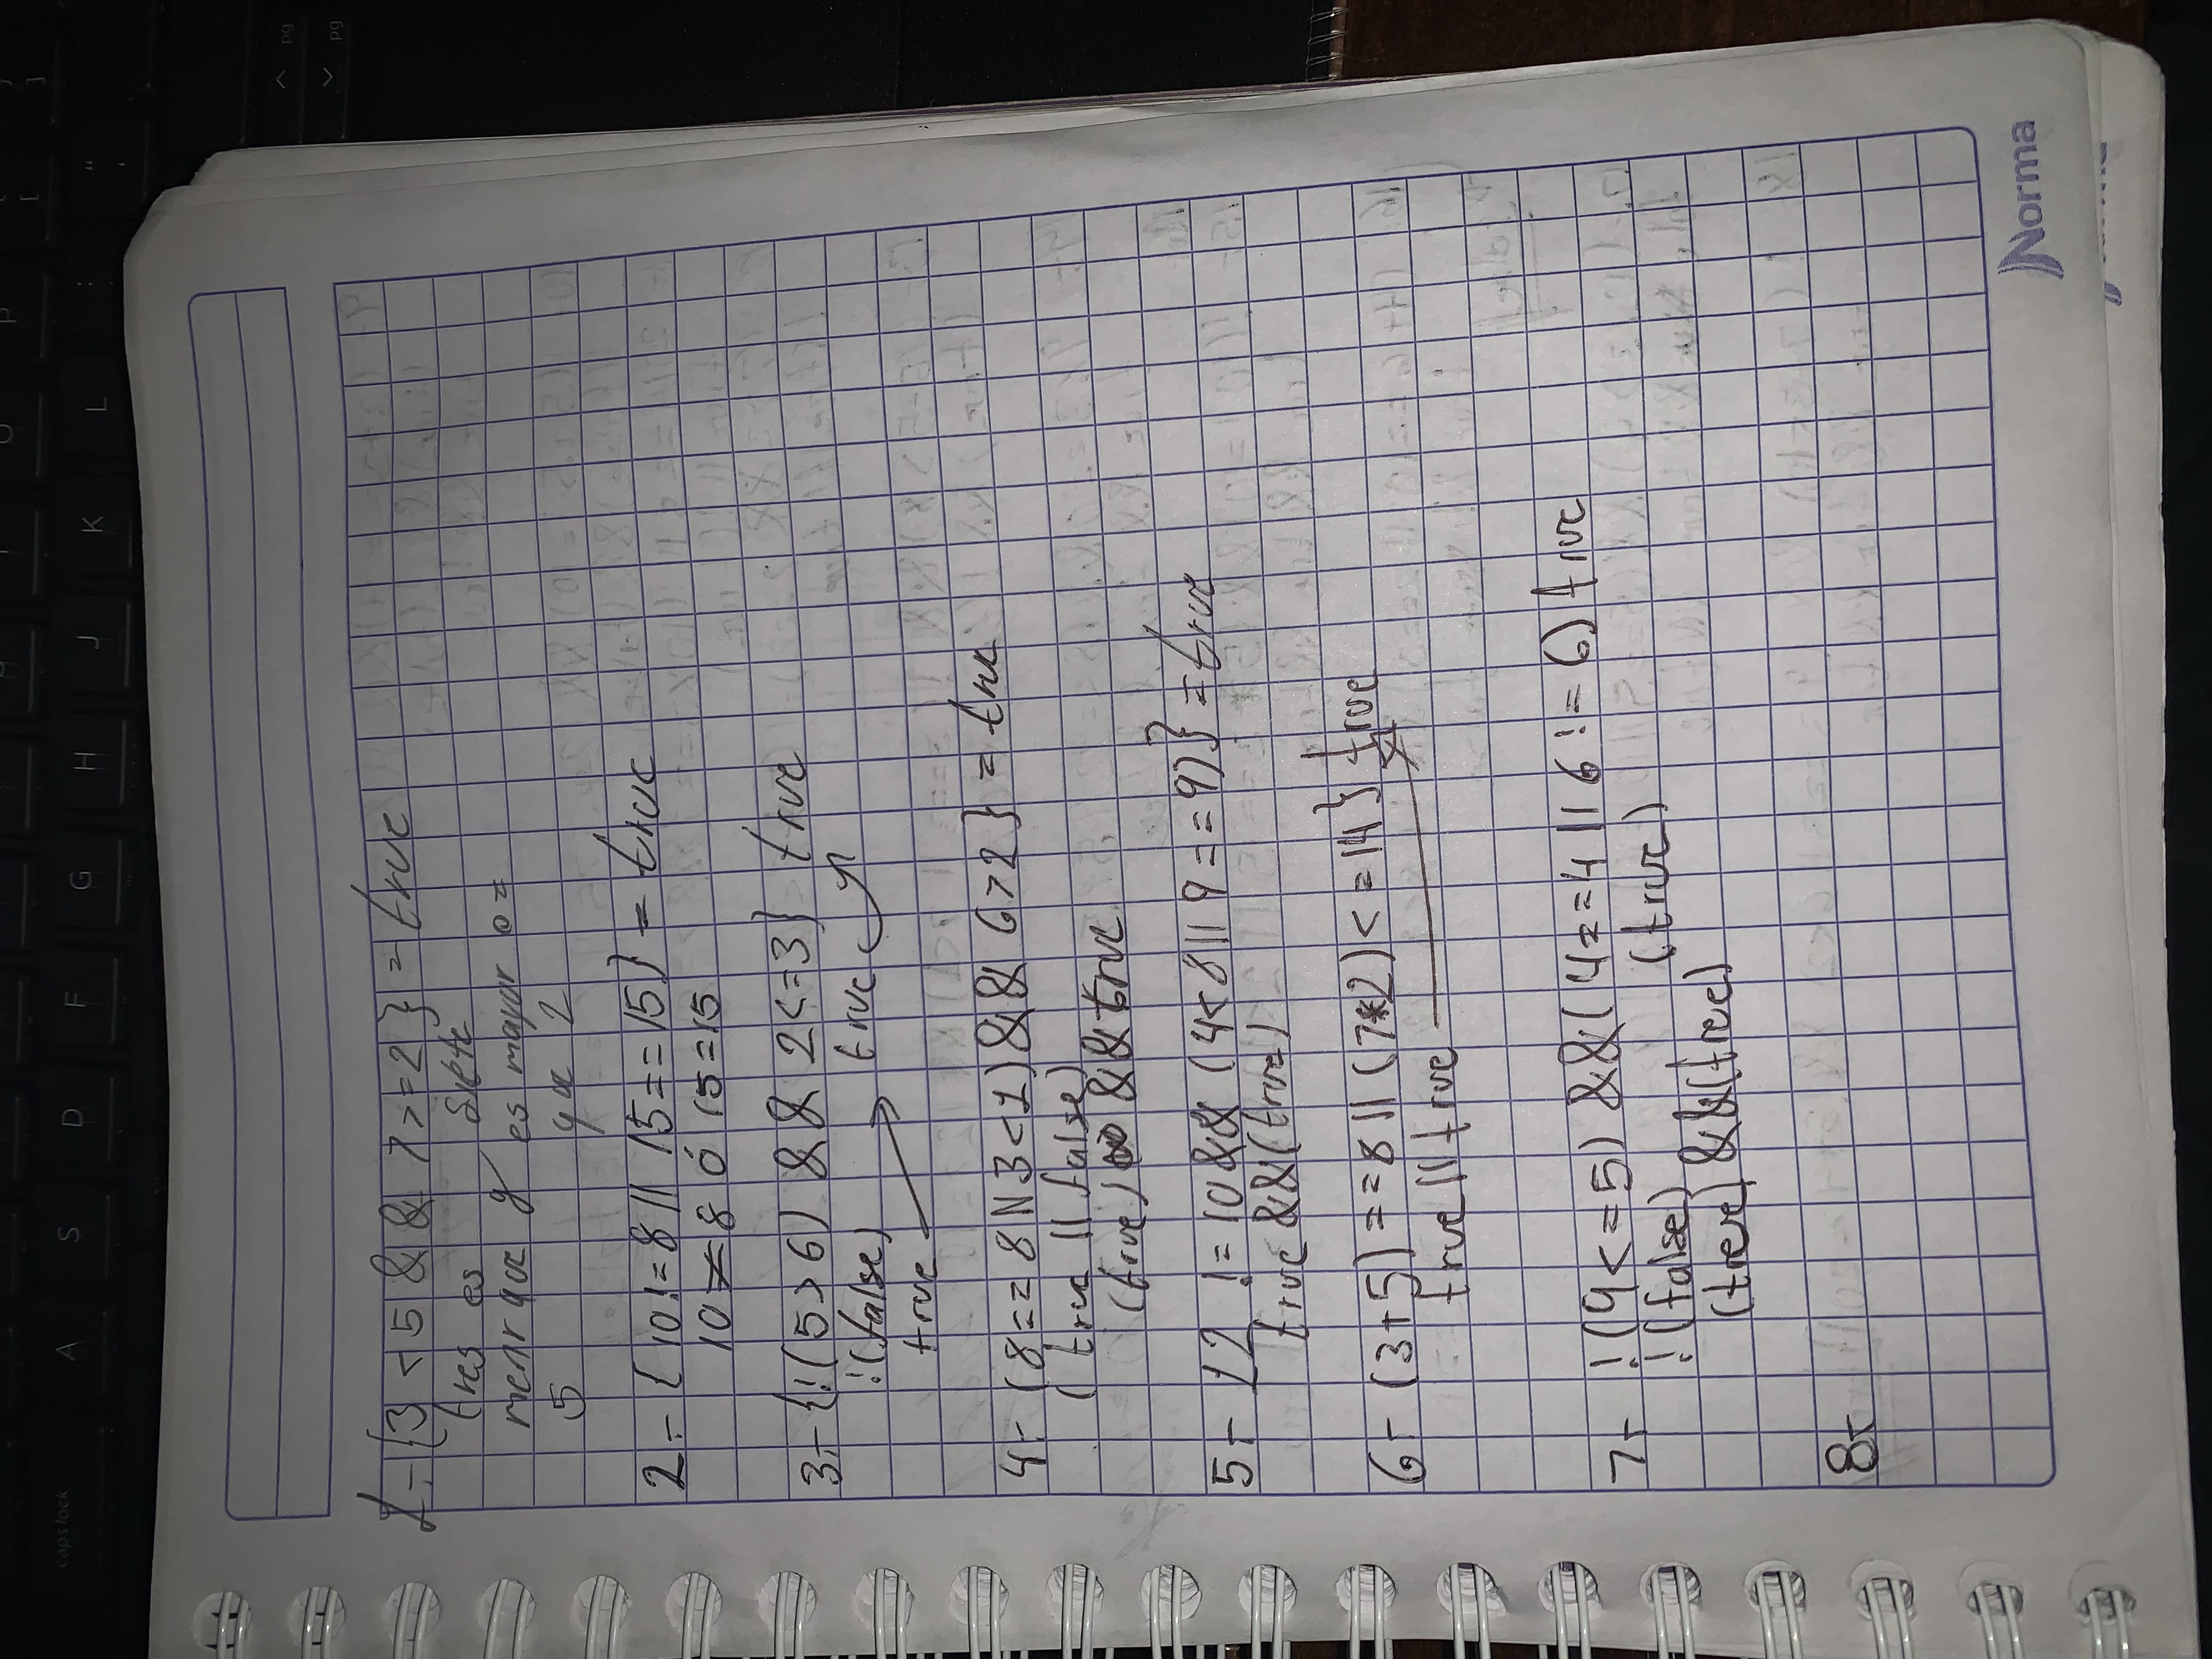 caps lock A S D F G H J K L : "
^ pg
v pg
1- {3 < 5 && 7 >= 2} = true
tres es siete
menr que y es mayor o =
5 que 2
2.- {10!=8 || 15==15} = true
10 ≠ 8 ó 15=15
3.- {!(5>6) && 2<=3} true
!(false) true
true
4- (8== 8 || 3<1) && 6>2} = true
( true || false)
(true) && true
5- 12 != 10 && (4<8 || 9==9)} = true
true && (true)
6- (3+5) ==8 || (7*2) <=14} true
true || true
7- !(9<=5) && (4==4 || 6!=6) true
!(false) (true)
(treve) && (tree)
8-
Norma